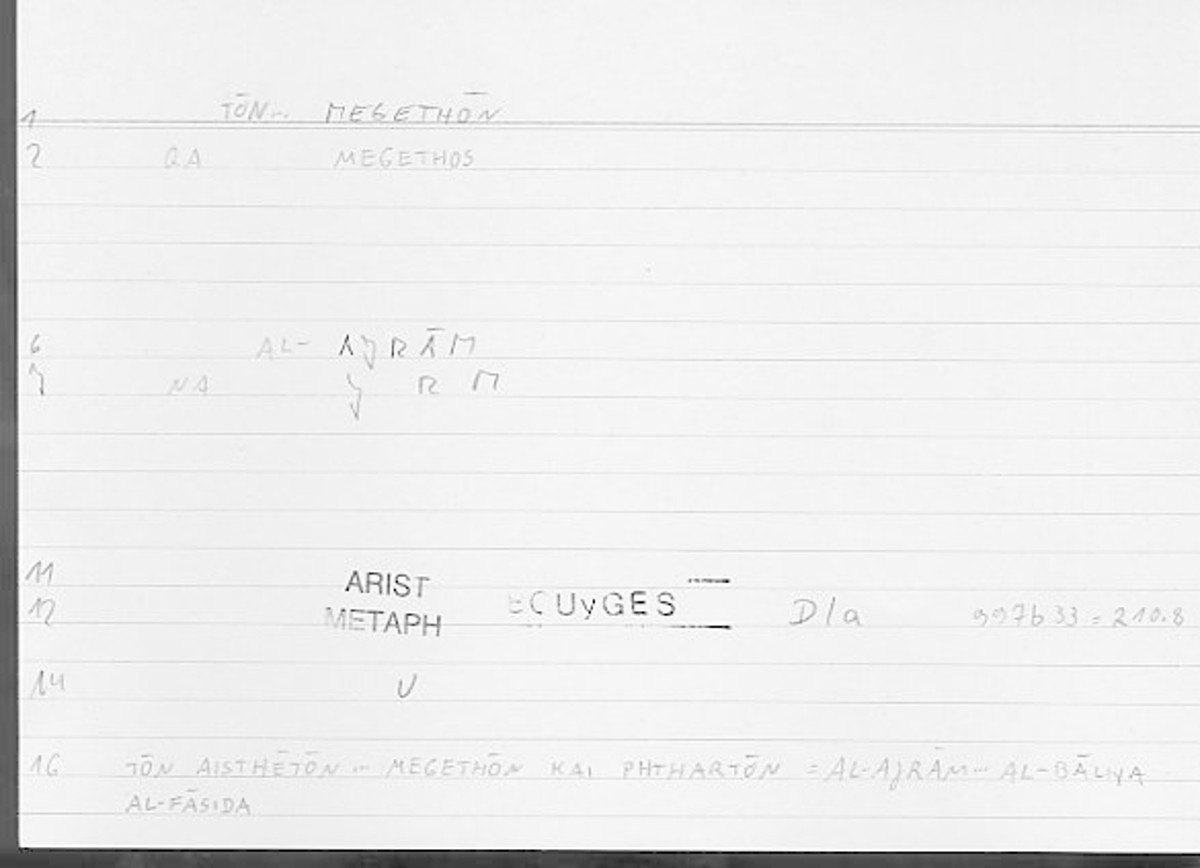 1 TŌN... MEGETHŌN
2 QA MEGETHOS
6 AL- AJRĀM
7 NA J R M
11 ARIST
12 METAPH UyGES D/a 997b33 = 210.8
14 V
16 TŌN AISTHĒTŌN ... MEGETHŌN KAI PHTHARTŌN = AL-AJRĀM... AL-BĀLIYA
AL-FĀSIDA